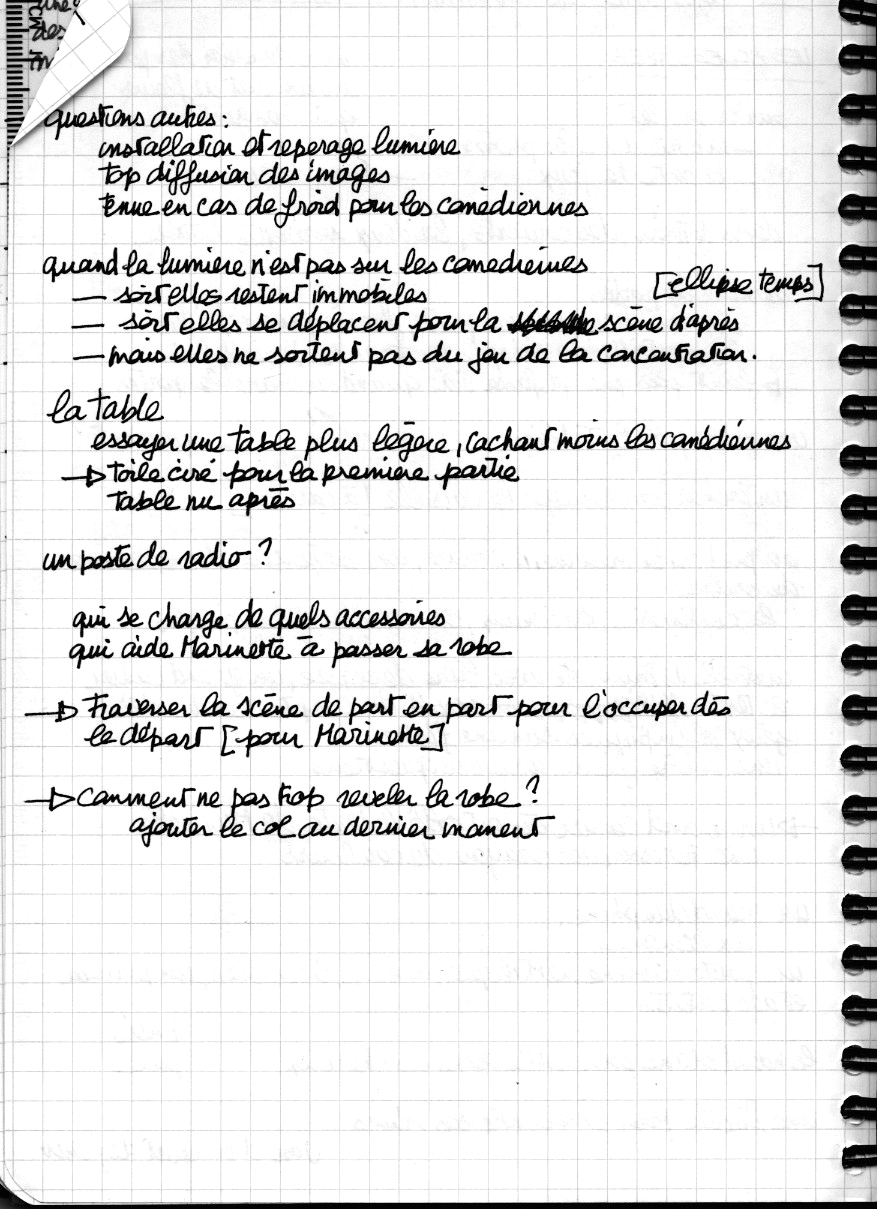 une
des
questions autres :
installation et reperage lumière
top diffusion des images
tenue en cas de froid pour les comédiennes
quand la lumière n'est pas sur les comediennes
[ellipse temps]
— soit elles restent immobiles
— soit elles se déplacent pour la scène d'après
— mais elles ne sortent pas du jeu de la concentration.
la table
essayer une table plus légère, cachant moins les comédiennes
→ toile ciré pour la première partie
table nu après
un poste de radio ?
qui se charge de quels accessoires
qui aide Marinette à passer sa robe
→ Traverser la scène de part en part pour l'occuper dès
le départ [pour Marinette]
→ comment ne pas trop reveler la robe ?
ajouter le col au dernier moment